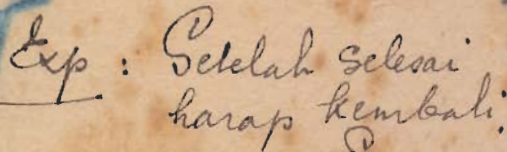 Exp : Setelah selesai
harap kembali.